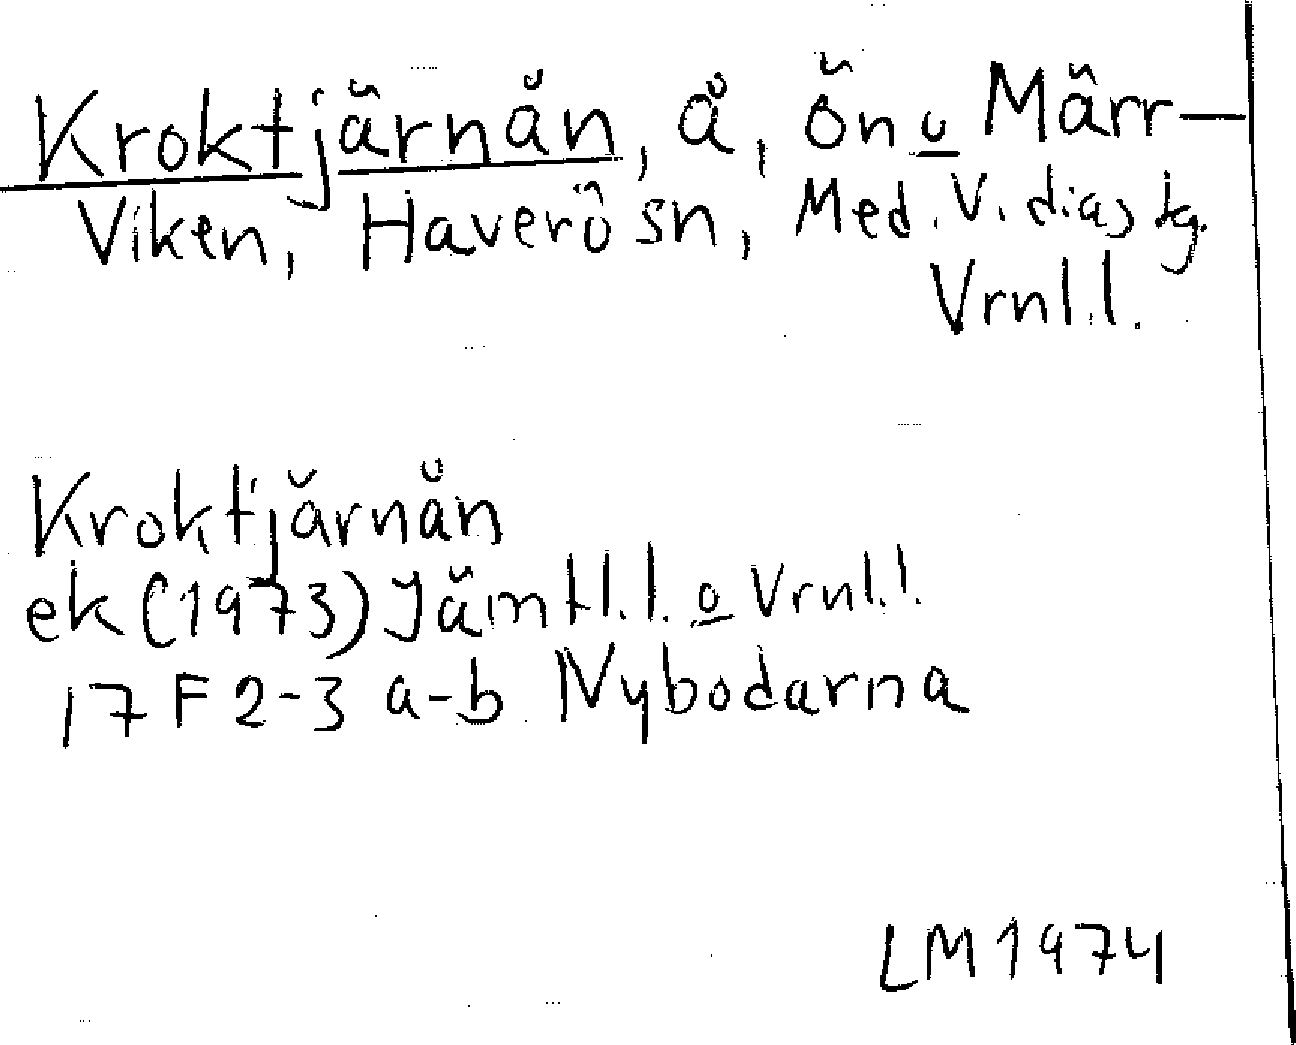 Kroktjärnån, å, ön o Märr-
Viken, Haverö sn, Med. V. diastg.
Vrnl.l.
Kroktjärnån
ek (1973) Jämtl.l. o Vrnl.l.
17 F 2-3 a-b Nybodarna
LM 1974